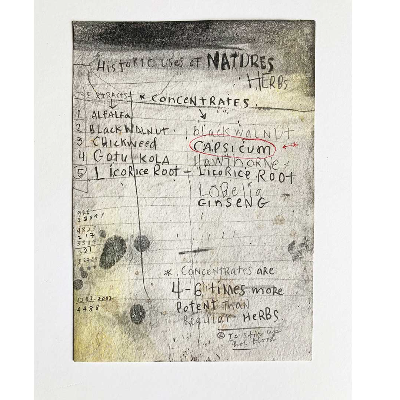 Historic uses of NATURES
HERBS
EXTRACTS
* CONCENTRATES.
1 ALFALFA
2 BLACK WALNUT black walnut
3 CHICKWEED CAPSICUM
4 GOTU KOLA HAWTHORNE
5 LICORICE ROOT - LICORICE ROOT
LOBELIA
GINSENG
* CONCENTRATES ARE
4-6 TIMES MORE
POTENT THAN
REGULAR HERBS